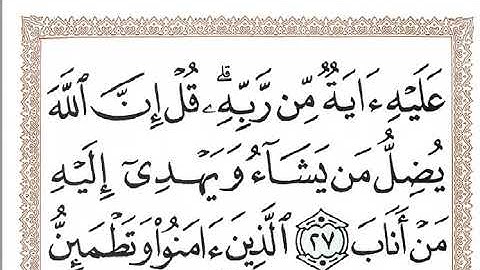 عَلَيْهِ ءَايَةٌ مِّن رَّبِّهِۦۗ قُلْ إِنَّ ٱللَّهَ
يُضِلُّ مَن يَشَآءُ وَيَهْدِىٓ إِلَيْهِ
مَنْ أَنَابَ ٢٧ ٱلَّذِينَ ءَامَنُوا۟ وَتَطْمَئِنُّ